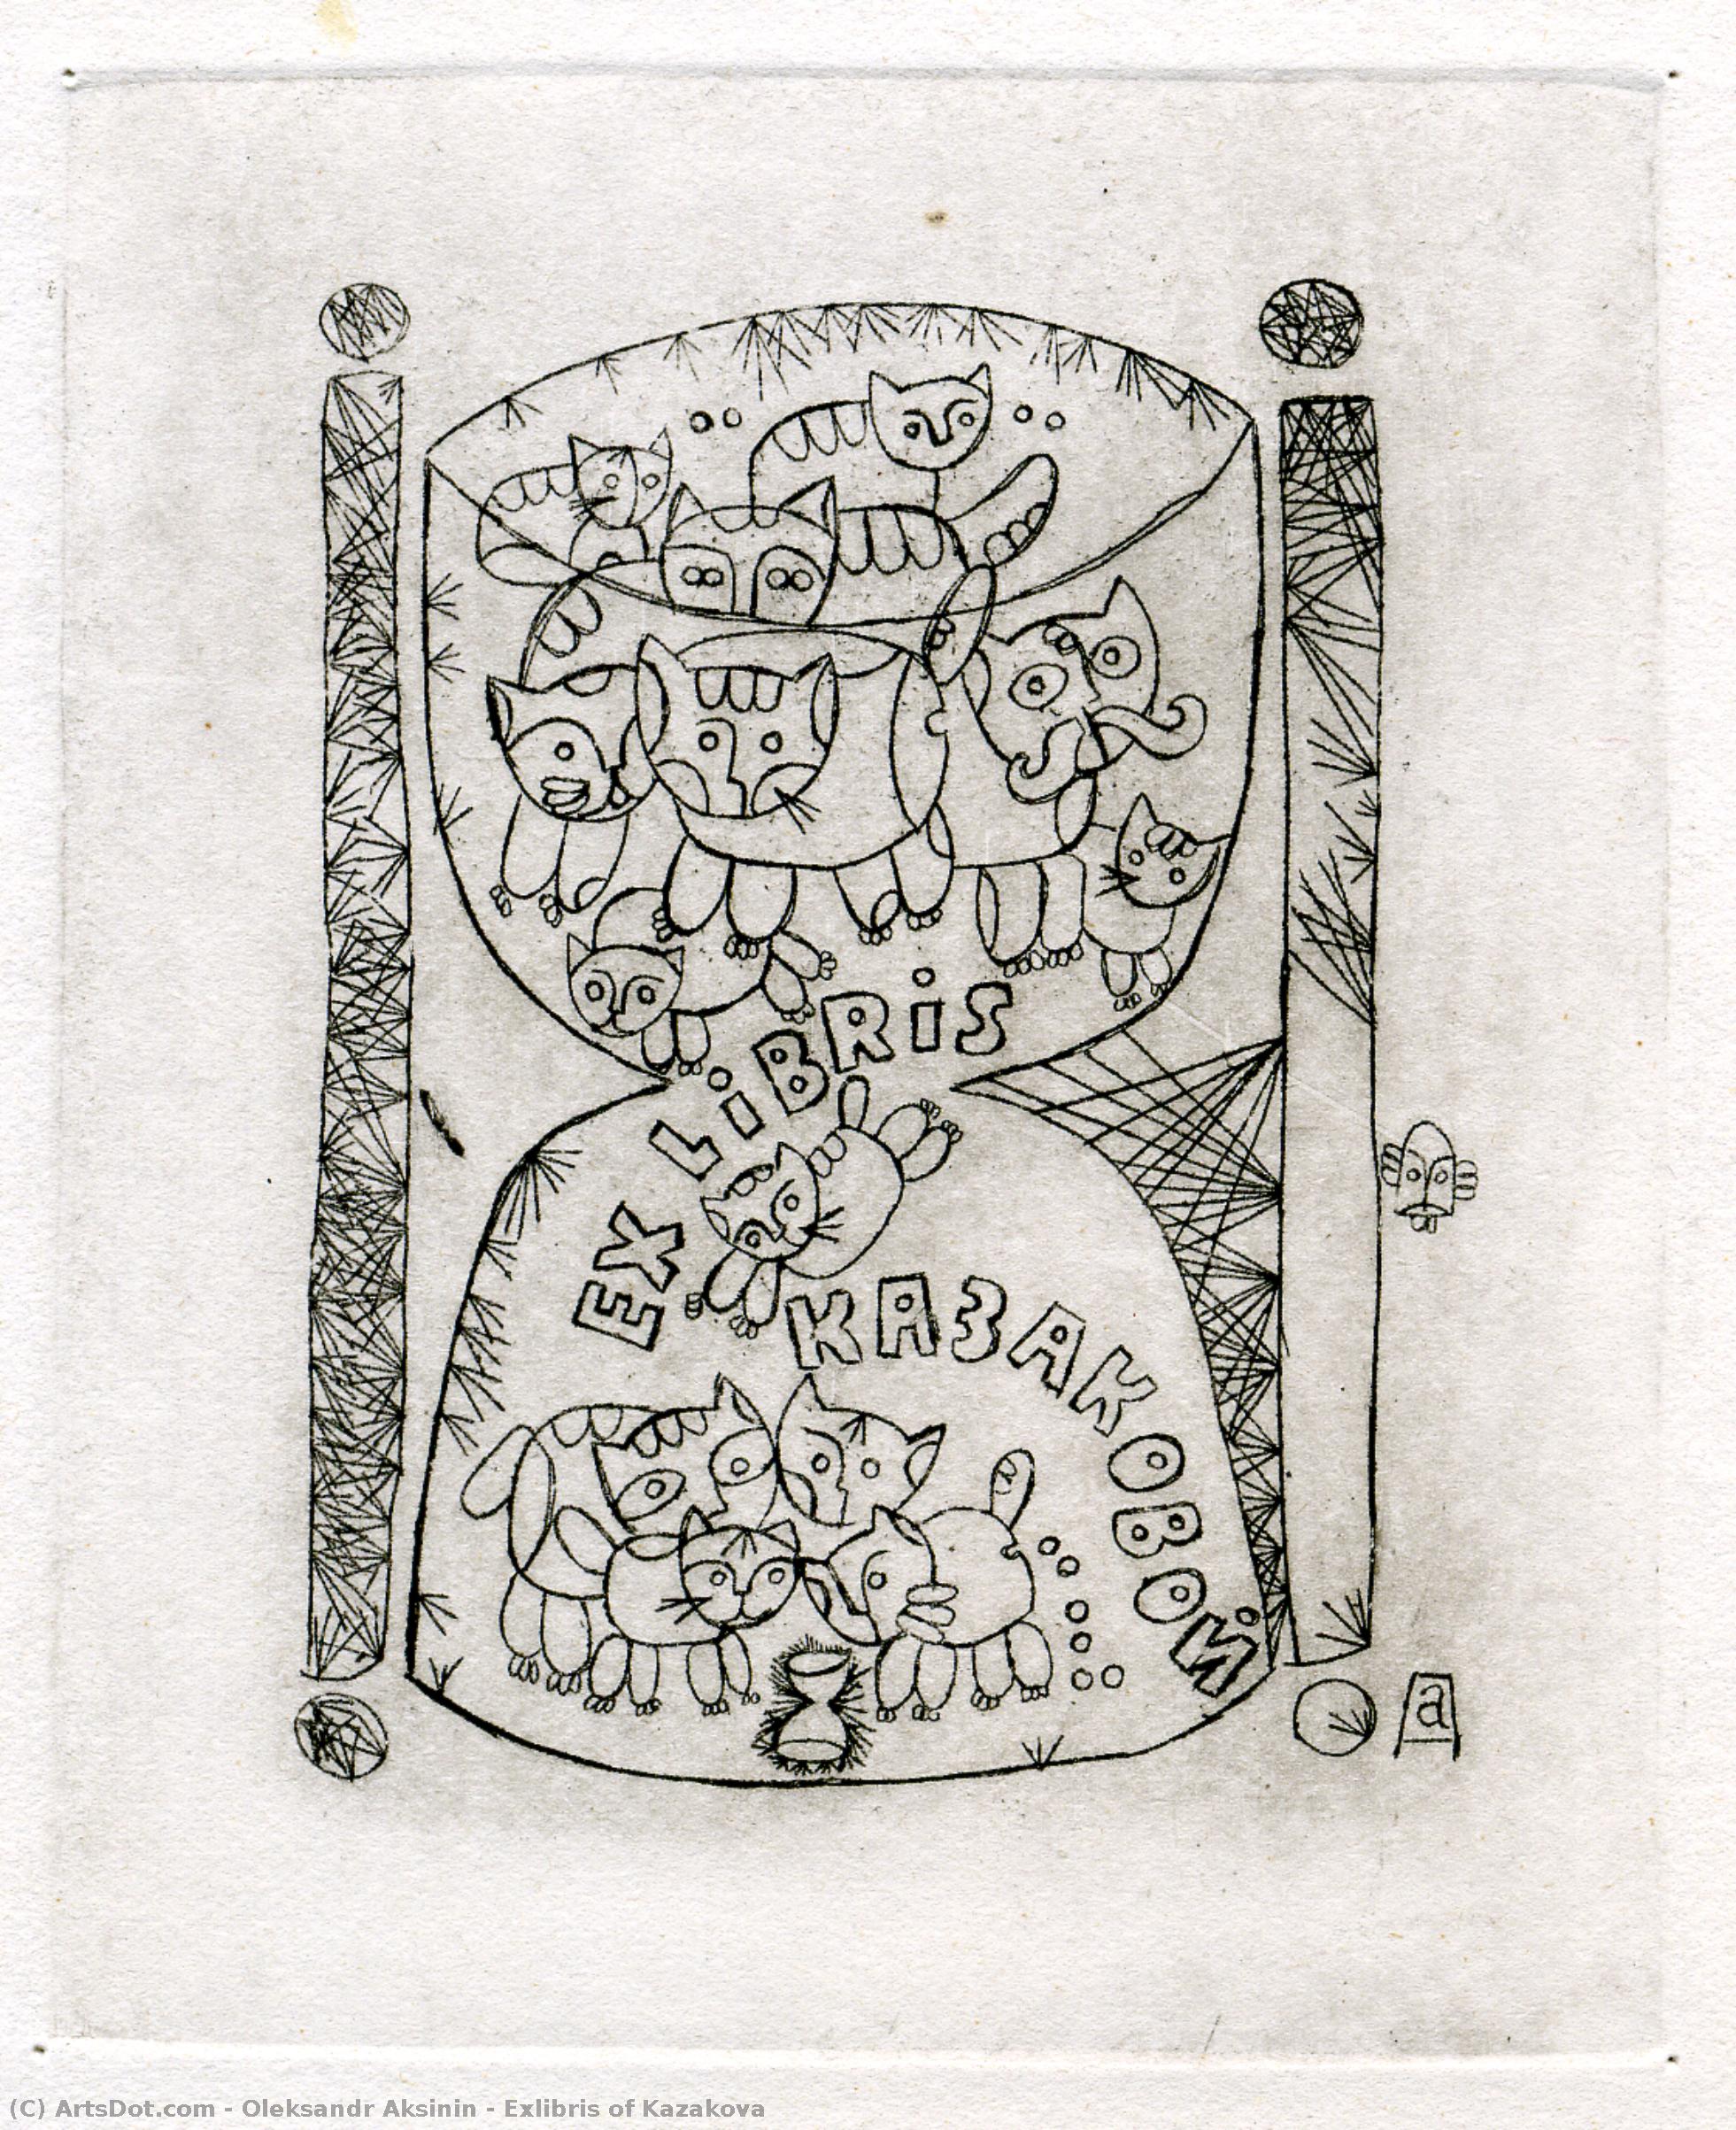 EX LiBRiS
КАЗАКОВОЙ
a
(C) ArtsDot.com - Oleksandr Aksinin - Exlibris of Kazakova